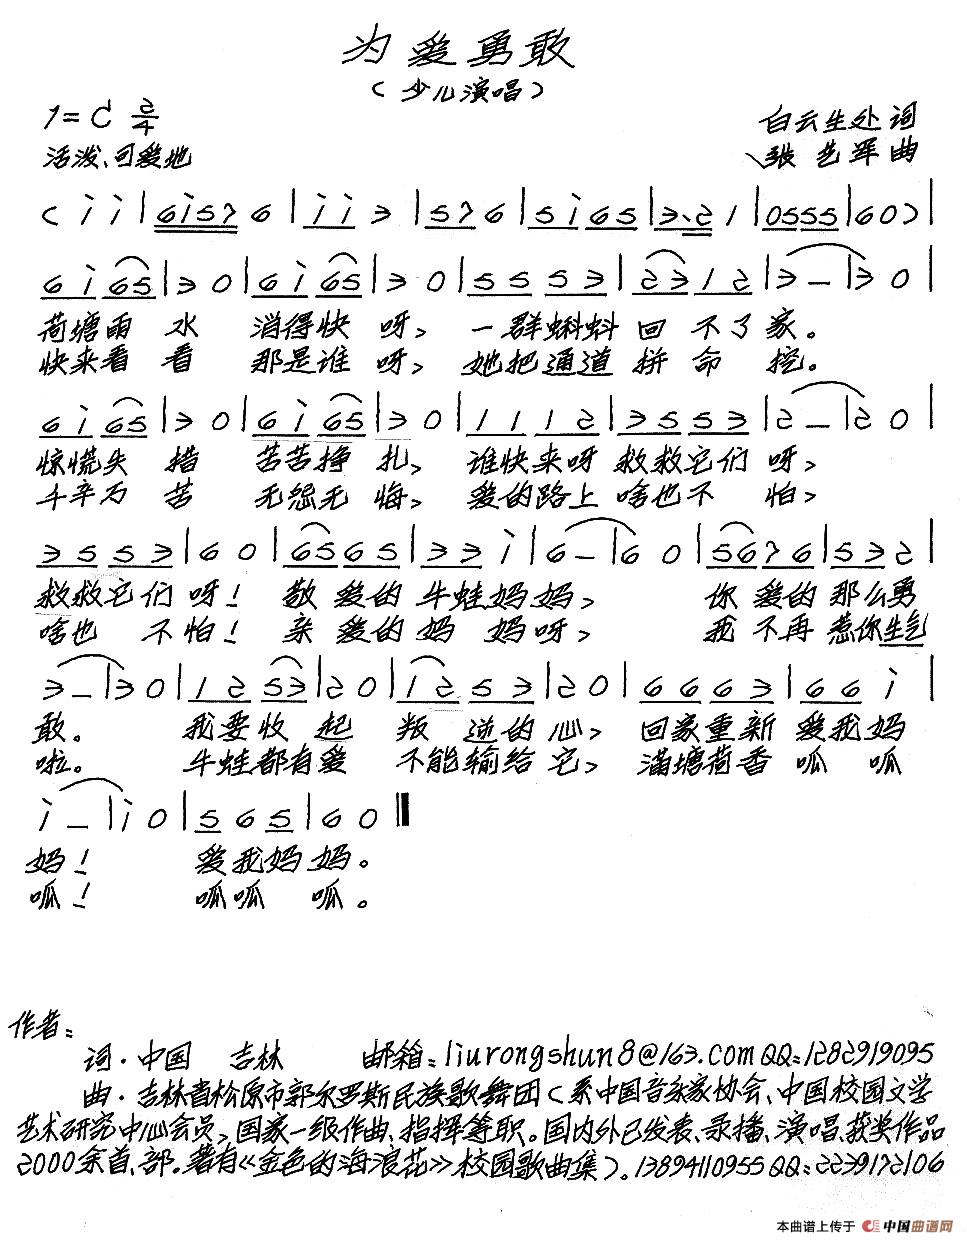 为爱勇敢
（少儿演唱）
1=C 2/4
白云生处 词
活泼、可爱地
张艺军 曲
( i i | 6i57 6 | i i 3 | 57 6 | 5i 65 | 3·2 1 | 0555 | 60 ) |
6 i 65 | 3 0 | 6 i 65 | 3 0 | 5 5 5 3 | 23 12 | 3 – | 3 0 |
荷塘雨 水 消得快 呀， 一群蝌蚪 回 不了 家。
快来看 看 那是谁 呀， 她把通道 拼 命 挖。
6 i 65 | 3 0 | 6 i 65 | 3 0 | 1 1 1 2 | 3 5 5 3 | 2 – | 2 0 |
惊慌失 措 苦苦挣 扎， 谁快来呀 救救它们 呀，
千辛万 苦 无怨无 悔， 爱的路上 啥也不 怕，
3 5 5 3 | 6 0 | 65 65 | 3 3 i | 6 – | 6 0 | 5676 | 5 3 2 |
救救它们 呀！ 敬 爱的 牛蛙妈 妈， 你 爱的 那么勇
啥也 不 怕！ 亲 爱的 妈 妈呀， 我 不再 惹你生气
3 – | 3 0 | 1 2 53 | 2 0 | i 2 5 3 | 2 0 | 6 6 6 3 | 6 6 i |
敢。 我要收 起 叛 逆的 心， 回家重新 爱我妈
啦。 牛蛙都有爱 不能输给 它， 满塘荷香 呱 呱
i – | i 0 | 5 6 5 | 6 0 ‖
妈！ 爱我妈 妈。
呱！ 呱呱 呱。
作者：
词·中国 吉林 邮箱：liurongshun8@163.com QQ：1282919095
曲·吉林省松原市郭尔罗斯民族歌舞团（系中国音乐家协会、中国校园文学
艺术研究中心会员，国家一级作曲、指挥等职。国内外已发表、录播、演唱、获奖作品
2000余首、部。著有《金色的海浪花》校园歌曲集）。13894110955 QQ：2239172106
本曲谱上传于 中国曲谱网